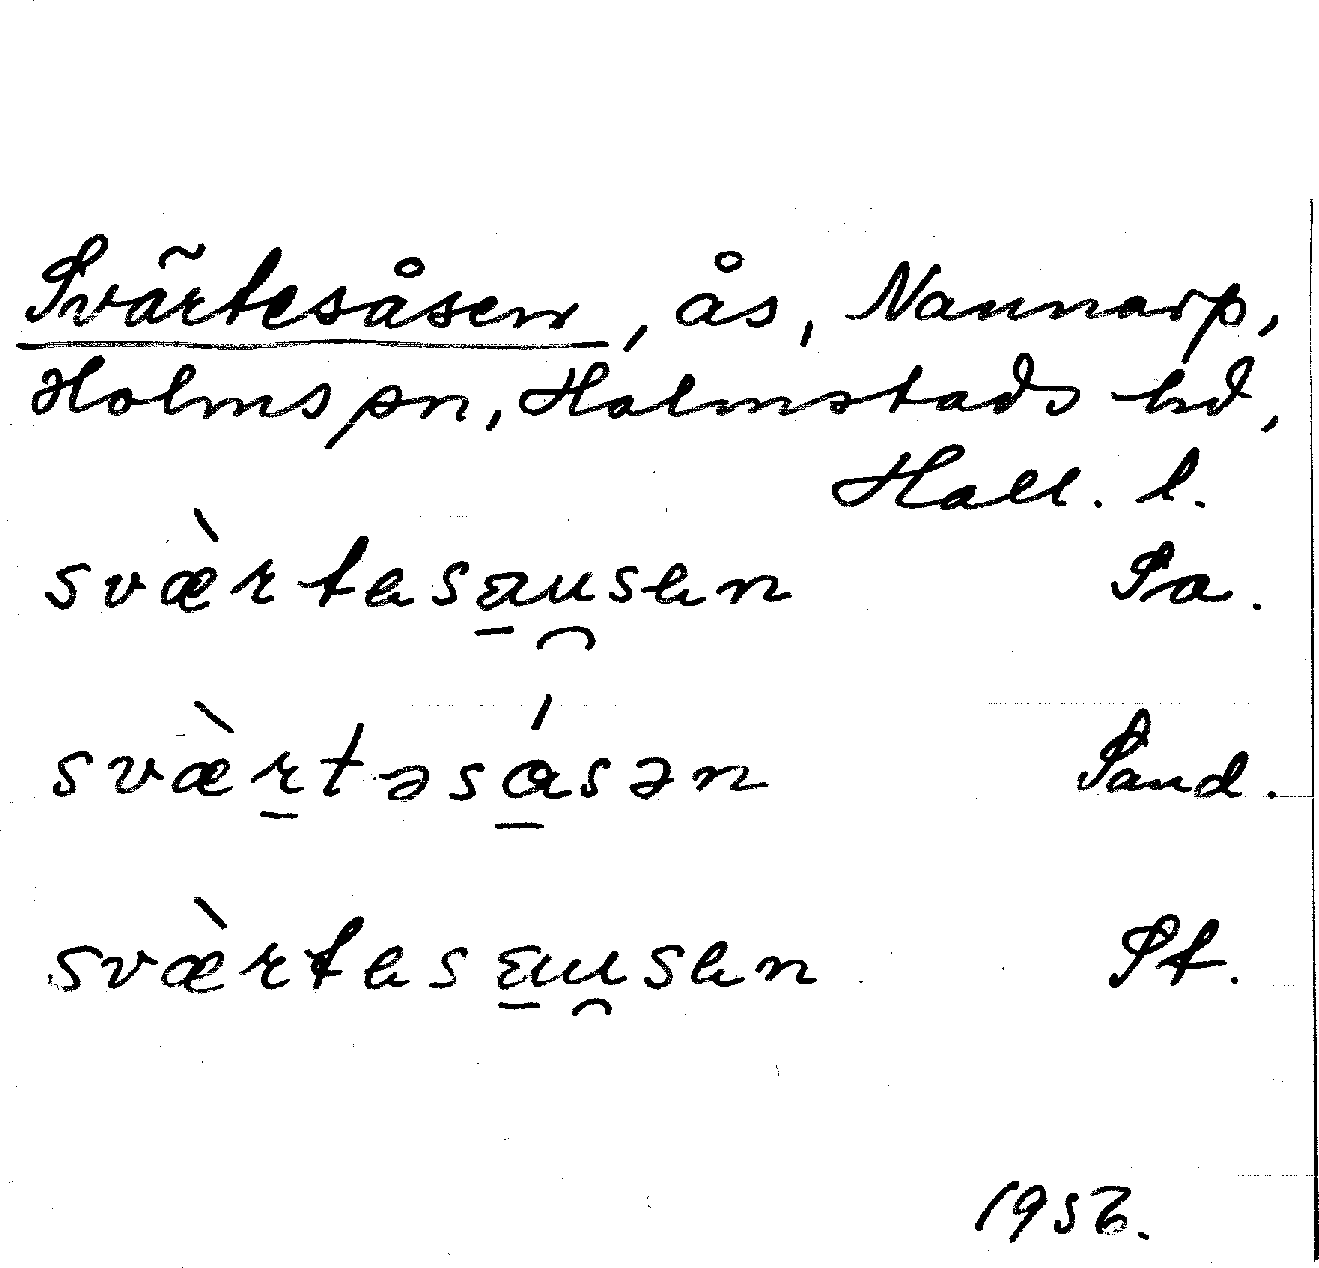 Svärtesåsen, ås, Nannarp,
Holms sn, Halmstads hd,
Hall. l.
svæ̀rtesa̲u̯sen Sa.
svæ̀r̲təsá̲sən Sand.
svæ̀rtesa̲u̯sen St.